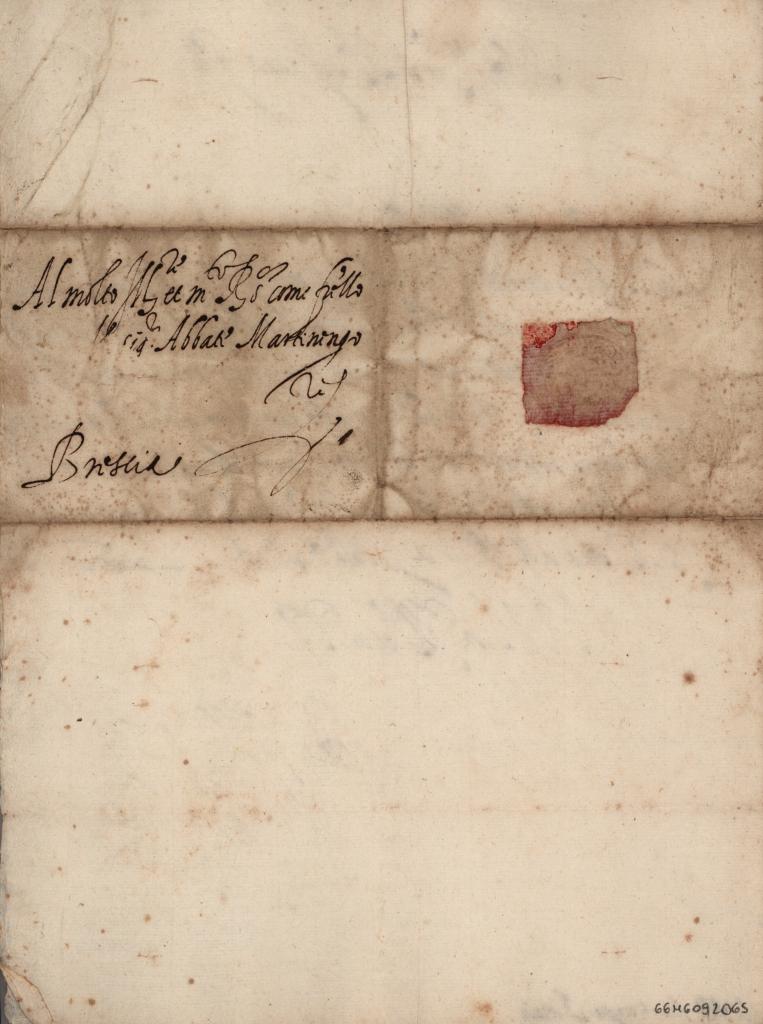 Al molto Ill.re et m.to R.do S.or come fr'ello
il sig.r Abbate Martinengo
Brescia
66M6092065